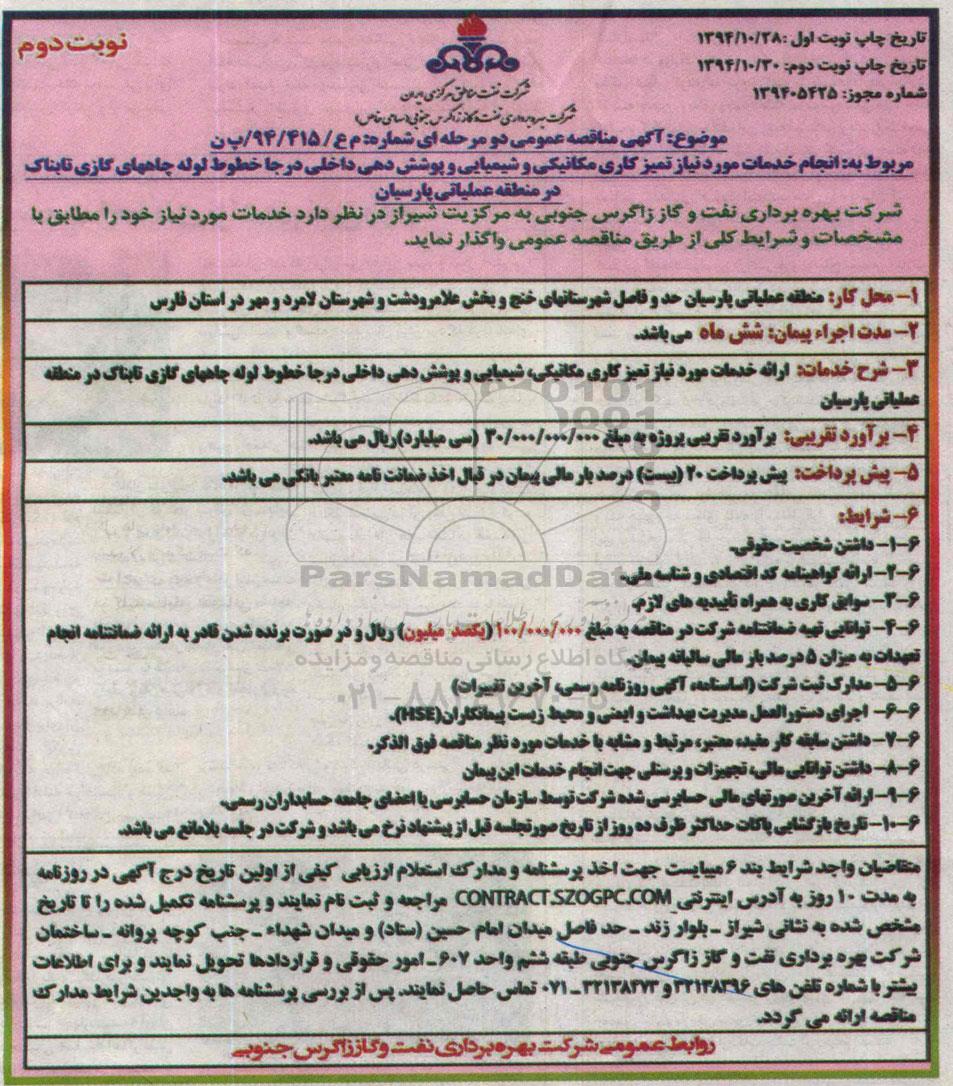 تاریخ چاپ نوبت اول :۱۳۹۴/۱۰/۲۸
تاریخ چاپ نوبت دوم: ۱۳۹۴/۱۰/۳۰
شماره مجوز: ۱۳۹۴۰۵۴۲۵
نوبت دوم
شرکت نفت مناطق مرکزی ایران
شرکت بهره برداری نفت و گاز زاگرس جنوبی (سهامی خاص)
موضوع: آگهی مناقصه عمومی دو مرحله ای شماره: م ع/ ۹۴/۴۱۵/پ ن
مربوط به: انجام خدمات مورد نیاز تمیز کاری مکانیکی و شیمیایی و پوشش دهی داخلی درجا خطوط لوله چاههای گازی تابناک
در منطقه عملیاتی پارسیان
شرکت بهره برداری نفت و گاز زاگرس جنوبی به مرکزیت شیراز در نظر دارد خدمات مورد نیاز خود را مطابق با
مشخصات و شرایط کلی از طریق مناقصه عمومی واگذار نماید.
۱- محل کار: منطقه عملیاتی پارسیان حد و فاصل شهرستانهای خنج و بخش علامرودشت و شهرستان لامرد و مهر در استان فارس
۲- مدت اجراء پیمان: شش ماه می باشد.
۳- شرح خدمات: ارائه خدمات مورد نیاز تمیز کاری مکانیکی، شیمیایی و پوشش دهی داخلی درجا خطوط لوله چاههای گازی تابناک در منطقه
عملیاتی پارسیان
۴- برآورد تقریبی: برآورد تقریبی پروژه به مبلغ ۳۰/۰۰۰/۰۰۰/۰۰۰ (سی میلیارد) ریال می باشد.
۵- پیش پرداخت: پیش پرداخت ۲۰ (بیست) درصد بار مالی پیمان در قبال اخذ ضمانت نامه معتبر بانکی می باشد.
۶- شرایط:
۶-۱- داشتن شخصیت حقوقی.
۶-۲- ارائه گواهینامه کد اقتصادی و شناسه ملی.
۶-۳- سوابق کاری به همراه تأییدیه های لازم.
۶-۴- توانایی تهیه ضمانتنامه شرکت در مناقصه به مبلغ ۱۰۰/۰۰۰/۰۰۰ (یکصد میلیون) ریال و در صورت برنده شدن قادر به ارائه ضمانتنامه انجام
تعهدات به میزان ۵ درصد بار مالی سالیانه پیمان.
۶-۵- مدارک ثبت شرکت (اساسنامه، آگهی روزنامه رسمی، آخرین تغییرات)
۶-۶- اجرای دستورالعمل مدیریت بهداشت و ایمنی و محیط زیست پیمانکاران(HSE).
۶-۷- داشتن سابقه کار مفید، معتبر، مرتبط و مشابه با خدمات مورد نظر مناقصه فوق الذکر.
۶-۸- داشتن توانایی مالی، تجهیزات و پرسنلی جهت انجام خدمات این پیمان
۶-۹- ارائه آخرین صورتهای مالی حسابرسی شده شرکت توسط سازمان حسابرسی یا اعضای جامعه حسابداران رسمی.
۶-۱۰- تاریخ بازگشایی پاکات حداکثر ظرف ده روز از تاریخ صورتجلسه قبل از پیشنهاد نرخ می باشد و شرکت در جلسه بلامانع می باشد.
متقاضیان واجد شرایط بند ۶ میبایست جهت اخذ پرسشنامه و مدارک استعلام ارزیابی کیفی از اولین تاریخ درج آگهی در روزنامه
به مدت ۱۰ روز به آدرس اینترنتی CONTRACT.SZOGPC.COM مراجعه و ثبت نام نمایند و پرسشنامه تکمیل شده را تا تاریخ
مشخص شده به نشانی شیراز ـ بلوار زند ـ حد فاصل میدان امام حسین (ستاد) و میدان شهداء ـ جنب کوچه پروانه ـ ساختمان
شرکت بهره برداری نفت و گاز زاگرس جنوبی طبقه ششم واحد ۶۰۷ ـ امور حقوقی و قراردادها تحویل نمایند و برای اطلاعات
بیشتر با شماره تلفن های ۳۲۱۳۸۳۹۶ و ۳۲۱۳۸۴۷۳ ـ ۰۷۱ تماس حاصل نمایند. پس از بررسی پرسشنامه ها به واجدین شرایط مدارک
مناقصه ارائه می گردد.
روابط عمومی شرکت بهره برداری نفت و گاز زاگرس جنوبی
ParsNamadData
پایگاه اطلاع رسانی مناقصه و مزایده